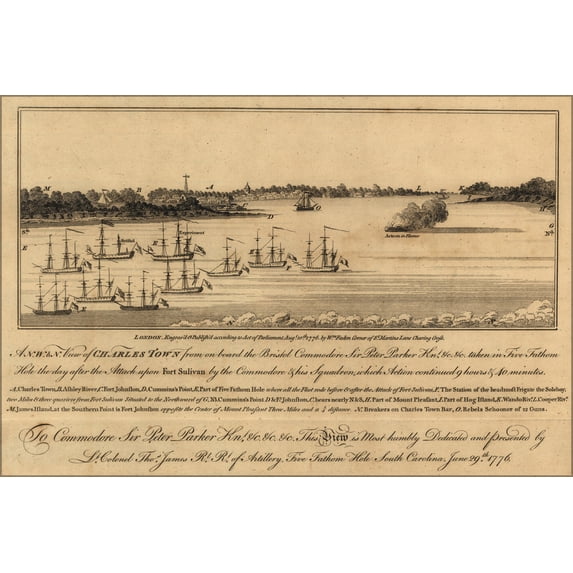 M B A L K
D O H
E Bristol Experiment Acteon in Flames G
LONDON, Engrav'd & Publish'd according to Act of Parliament, Augst 10th 1776, by Wm Faden Corner of St Martins Lane Charing Cross.
A N.W.b.N. View of CHARLES TOWN from on board the Bristol Commodore Sir Peter Parker Knt. &c. &c. taken in Five Fathom
Hole the day after the Attack upon Fort Sulivan by the Commodore & his Squadron, which Action continued 9 hours & 40 minutes.
A, Charles Town, B, Ashley River, C, Fort Johnston, D, Cummins's Point, E, Part of Five Fathom Hole where all the Fleet rode before & after the Attack of Fort Sulivan, F, The Station of the headmost Frigate the Solebay,
two Miles & three quarters from Fort Sulivan Situated to the Northward of G, Cummins's Point D & Ft Johnston, C, bears nearly N & S, H, Part of Mount Pleasant, I, Part of Hog Island, K, Wando Rivr, L, Cooper Rivr
M, James Island, at the Southern Point is Fort Johnston opposite the Center of Mount Pleasant Three Miles and a ½ distance. N, Breakers on Charles Town Bar, O, Rebels Schooner of 12 Guns.
To Commodore Sir Peter Parker Knt. &c. &c. &c. This View is Most humbly Dedicated and presented by
Lt. Colonel Thos. James Rl. Rt. of Artillery, Five Fathom Hole South Carolina, June 29th 1776.